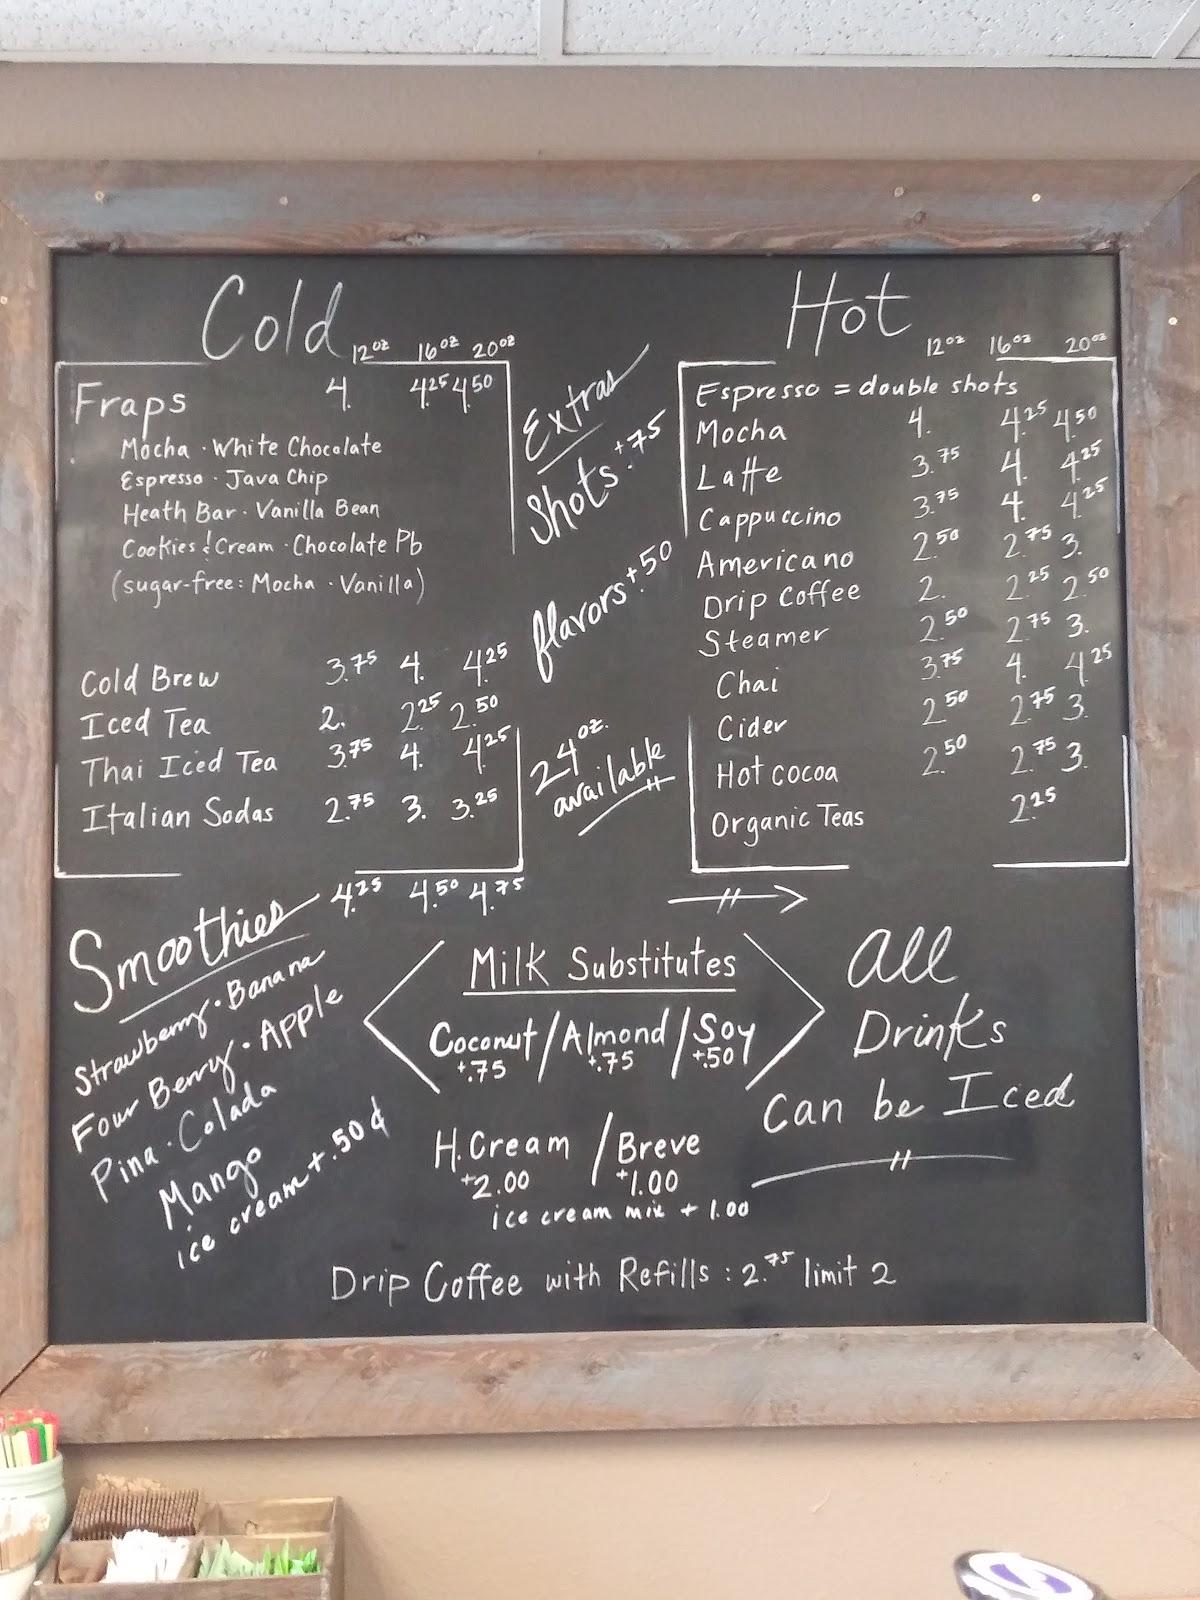 Cold
12oz 16oz 20oz
Fraps 4. 4.25 4.50
Mocha · White Chocolate
Espresso · Java Chip
Heath Bar · Vanilla Bean
Cookies & Cream · Chocolate Pb
(sugar-free: Mocha · Vanilla)
Cold Brew 3.75 4. 4.25
Iced Tea 2. 2.25 2.50
Thai Iced Tea 3.75 4. 4.25
Italian Sodas 2.75 3. 3.25
Smoothies 4.25 4.50 4.75
Strawberry · Banana
Four Berry · Apple
Pina · Colada
Mango
ice cream + .50¢
Extras
Shots +.75
flavors +.50
24 oz.
available
Hot
12oz 16oz 20oz
Espresso = double shots
Mocha 4. 4.25 4.50
Latte 3.75 4. 4.25
Cappuccino 3.75 4. 4.25
Americano 2.50 2.75 3.
Drip Coffee 2. 2.25 2.50
Steamer 2.50 2.75 3.
Chai 3.75 4. 4.25
Cider 2.50 2.75 3.
Hot cocoa 2.50 2.75 3.
Organic Teas 2.25
Milk Substitutes
Coconut / Almond / Soy
+.75 +.75 +.50
H. Cream / Breve
+2.00 +1.00
ice cream mix + 1.00
All
Drinks
can be Iced
Drip Coffee with Refills : 2.75 limit 2